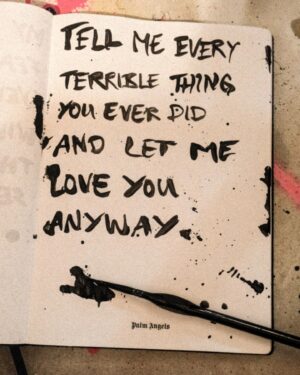 TELL ME EVERY
TERRIBLE THING
YOU EVER DID
AND LET ME
LOVE YOU
ANYWAY.
Palm Angels